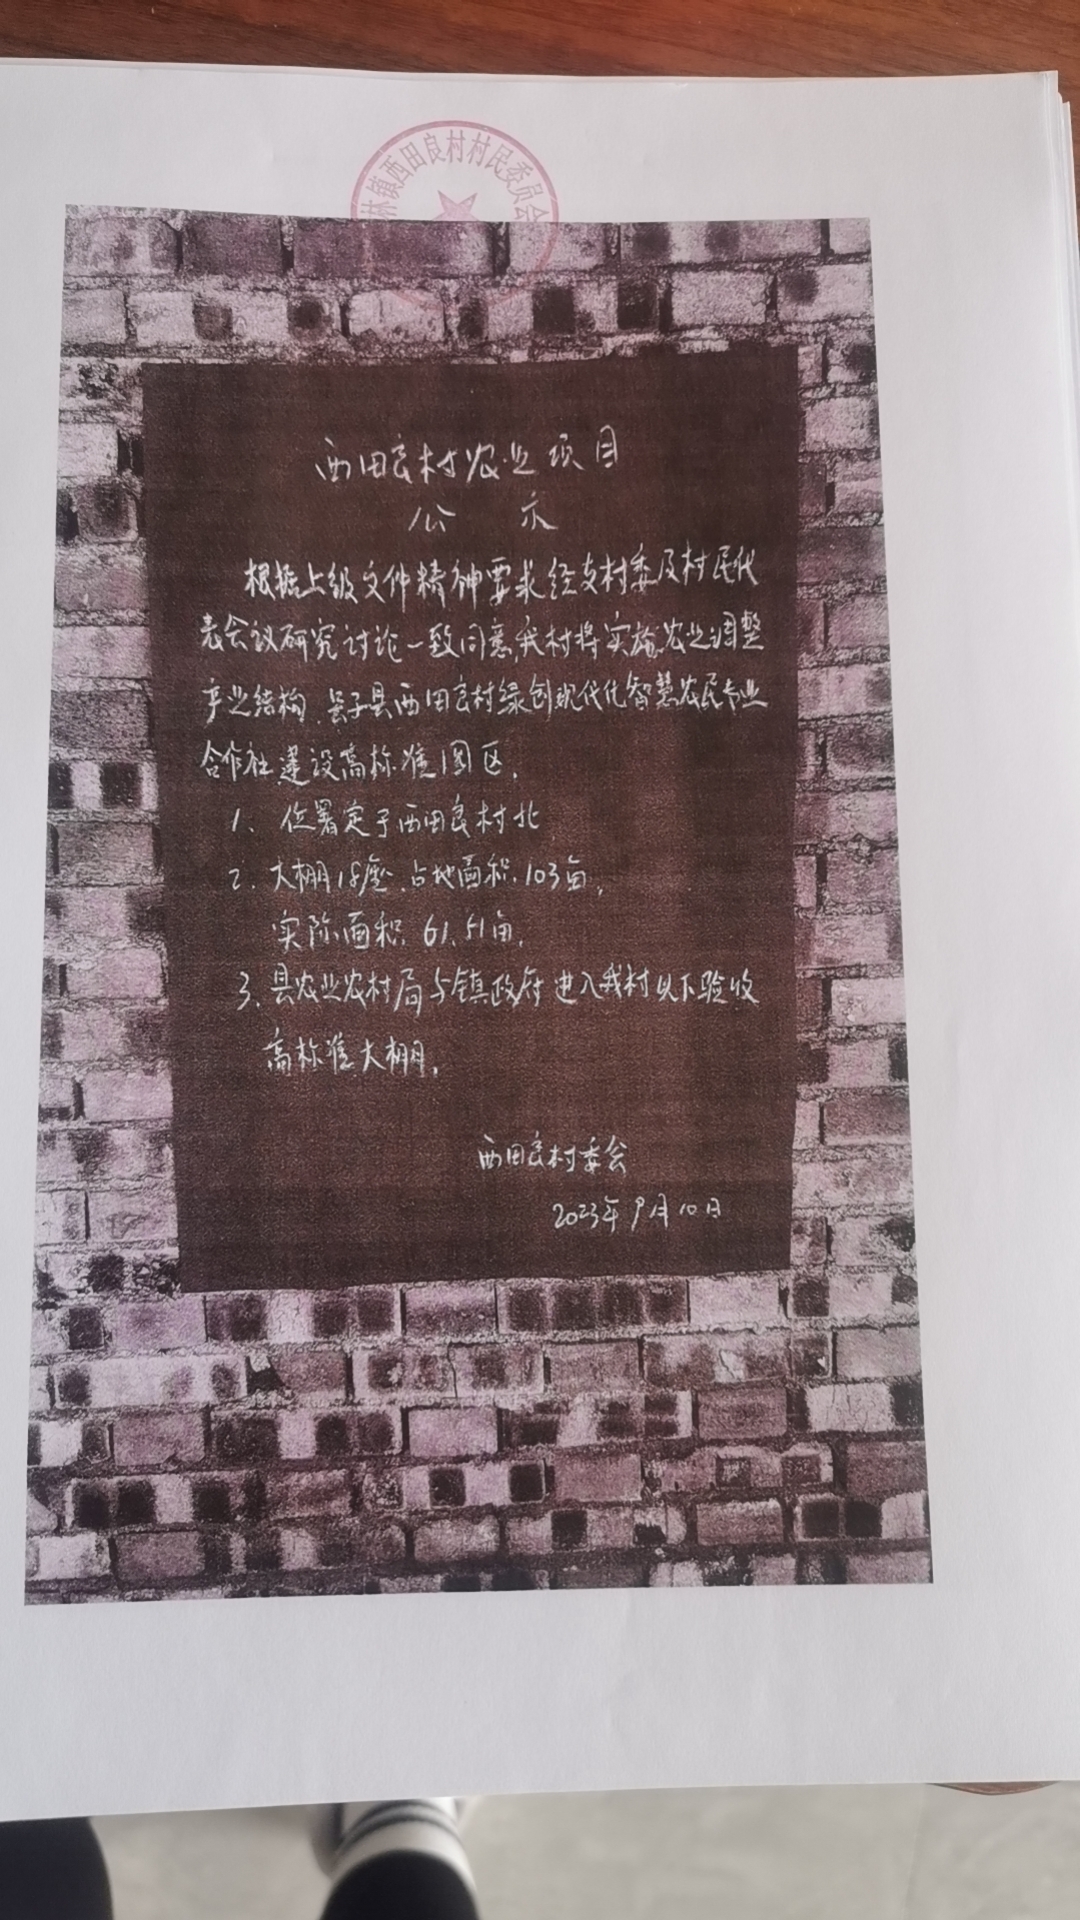 林镇西田良村村民委员会
西田良村农业项目
公 示
根据上级文件精神要求经支村委及村民代
表会议研究讨论一致同意,我村将实施农业调整
产业结构.长子县西田良村绿创现代化智慧农民专业
合作社建设高标准园区.
1、位置定于西田良村北
2.大棚18座.占地面积.103亩,
实际面积.61.51亩.
3.县农业农村局与镇政府进入我村以下验收
高标准大棚.
西田良村委会
2023年9月10日